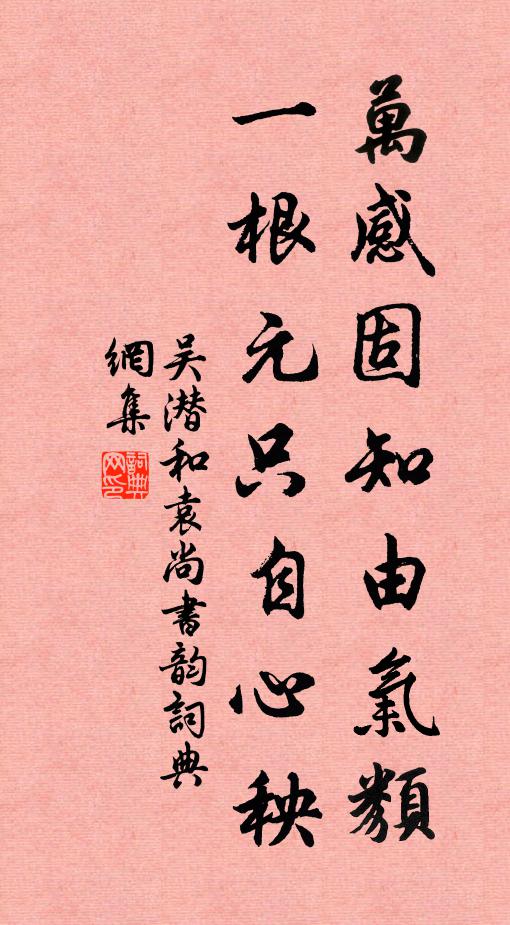 萬感固知由氣類
一根元只自心秧
吳潛和袁尚書韵詞典
網集
詞典網印